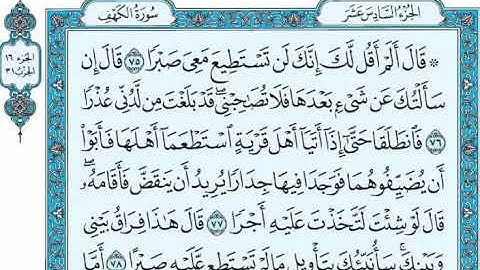 الجزء السادس عشر
سورة الكهف
الجزء ١٦
الحزب ٣١
* قَالَ أَلَمْ أَقُل لَّكَ إِنَّكَ لَن تَسْتَطِيعَ مَعِيَ صَبْرًا ٧٥ قَالَ إِن
سَأَلْتُكَ عَن شَيْءٍ بَعْدَهَا فَلَا تُصَٰحِبْنِي ۖ قَدْ بَلَغْتَ مِن لَّدُنِّي عُذْرًا
٧٦ فَٱنطَلَقَا حَتَّىٰٓ إِذَآ أَتَيَآ أَهْلَ قَرْيَةٍ ٱسْتَطْعَمَآ أَهْلَهَا فَأَبَوْا۟
أَن يُضَيِّفُوهُمَا فَوَجَدَا فِيهَا جِدَارًا يُرِيدُ أَن يَنقَضَّ فَأَقَامَهُۥ ۖ
قَالَ لَوْ شِئْتَ لَتَّخَذْتَ عَلَيْهِ أَجْرًا ٧٧ قَالَ هَٰذَا فِرَاقُ بَيْنِي
وَبَيْنِكَ ۚ سَأُنَبِّئُكَ بِتَأْوِيلِ مَا لَمْ تَسْتَطِع عَّلَيْهِ صَبْرًا ٧٨ أَمَّا